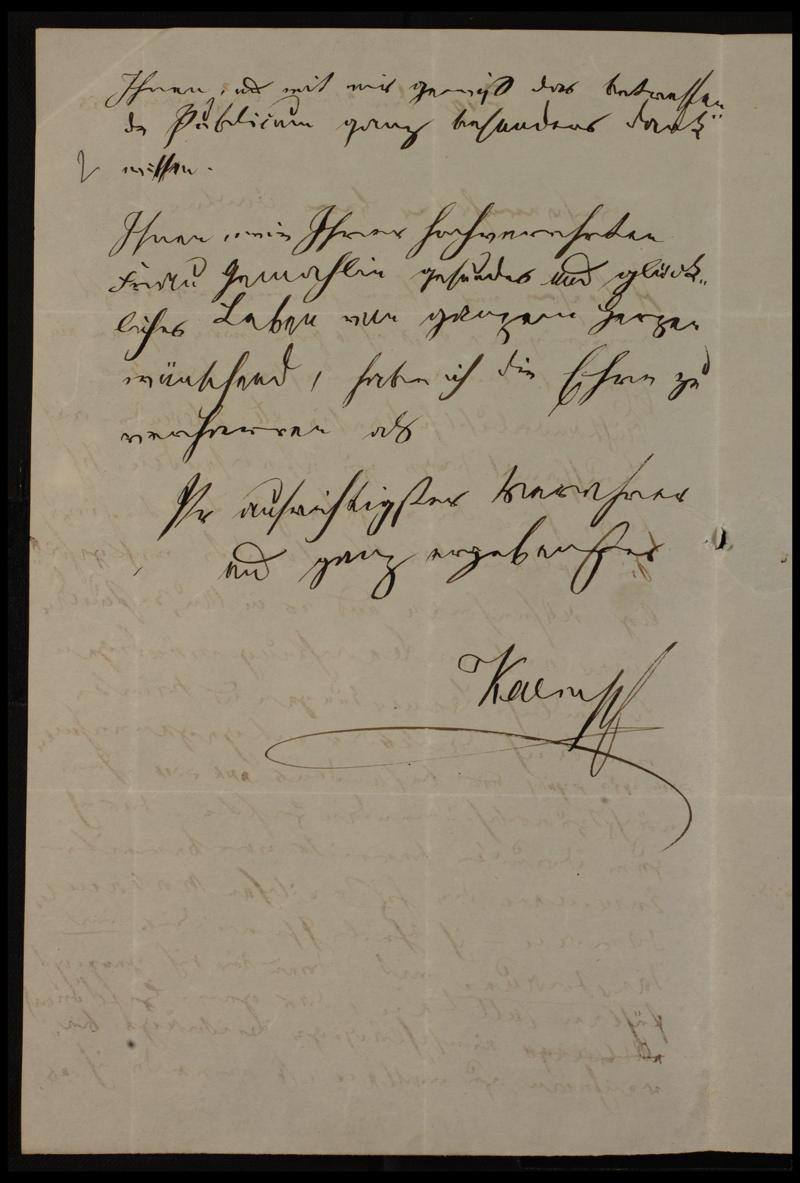 Ihnen, und mit mir gewiß das betreffen-
de Publicum ganz besonders dank"
wissen.
Ihnen, wie Ihrer hochverehrten
Frau Gemahlin gesundes und glück-
liches Leben von ganzem Herzen
wünschend, habe ich die Ehre zu
verharren als
Ihr aufrichtigster Verehrer
und ganz ergebenster
Kaempf